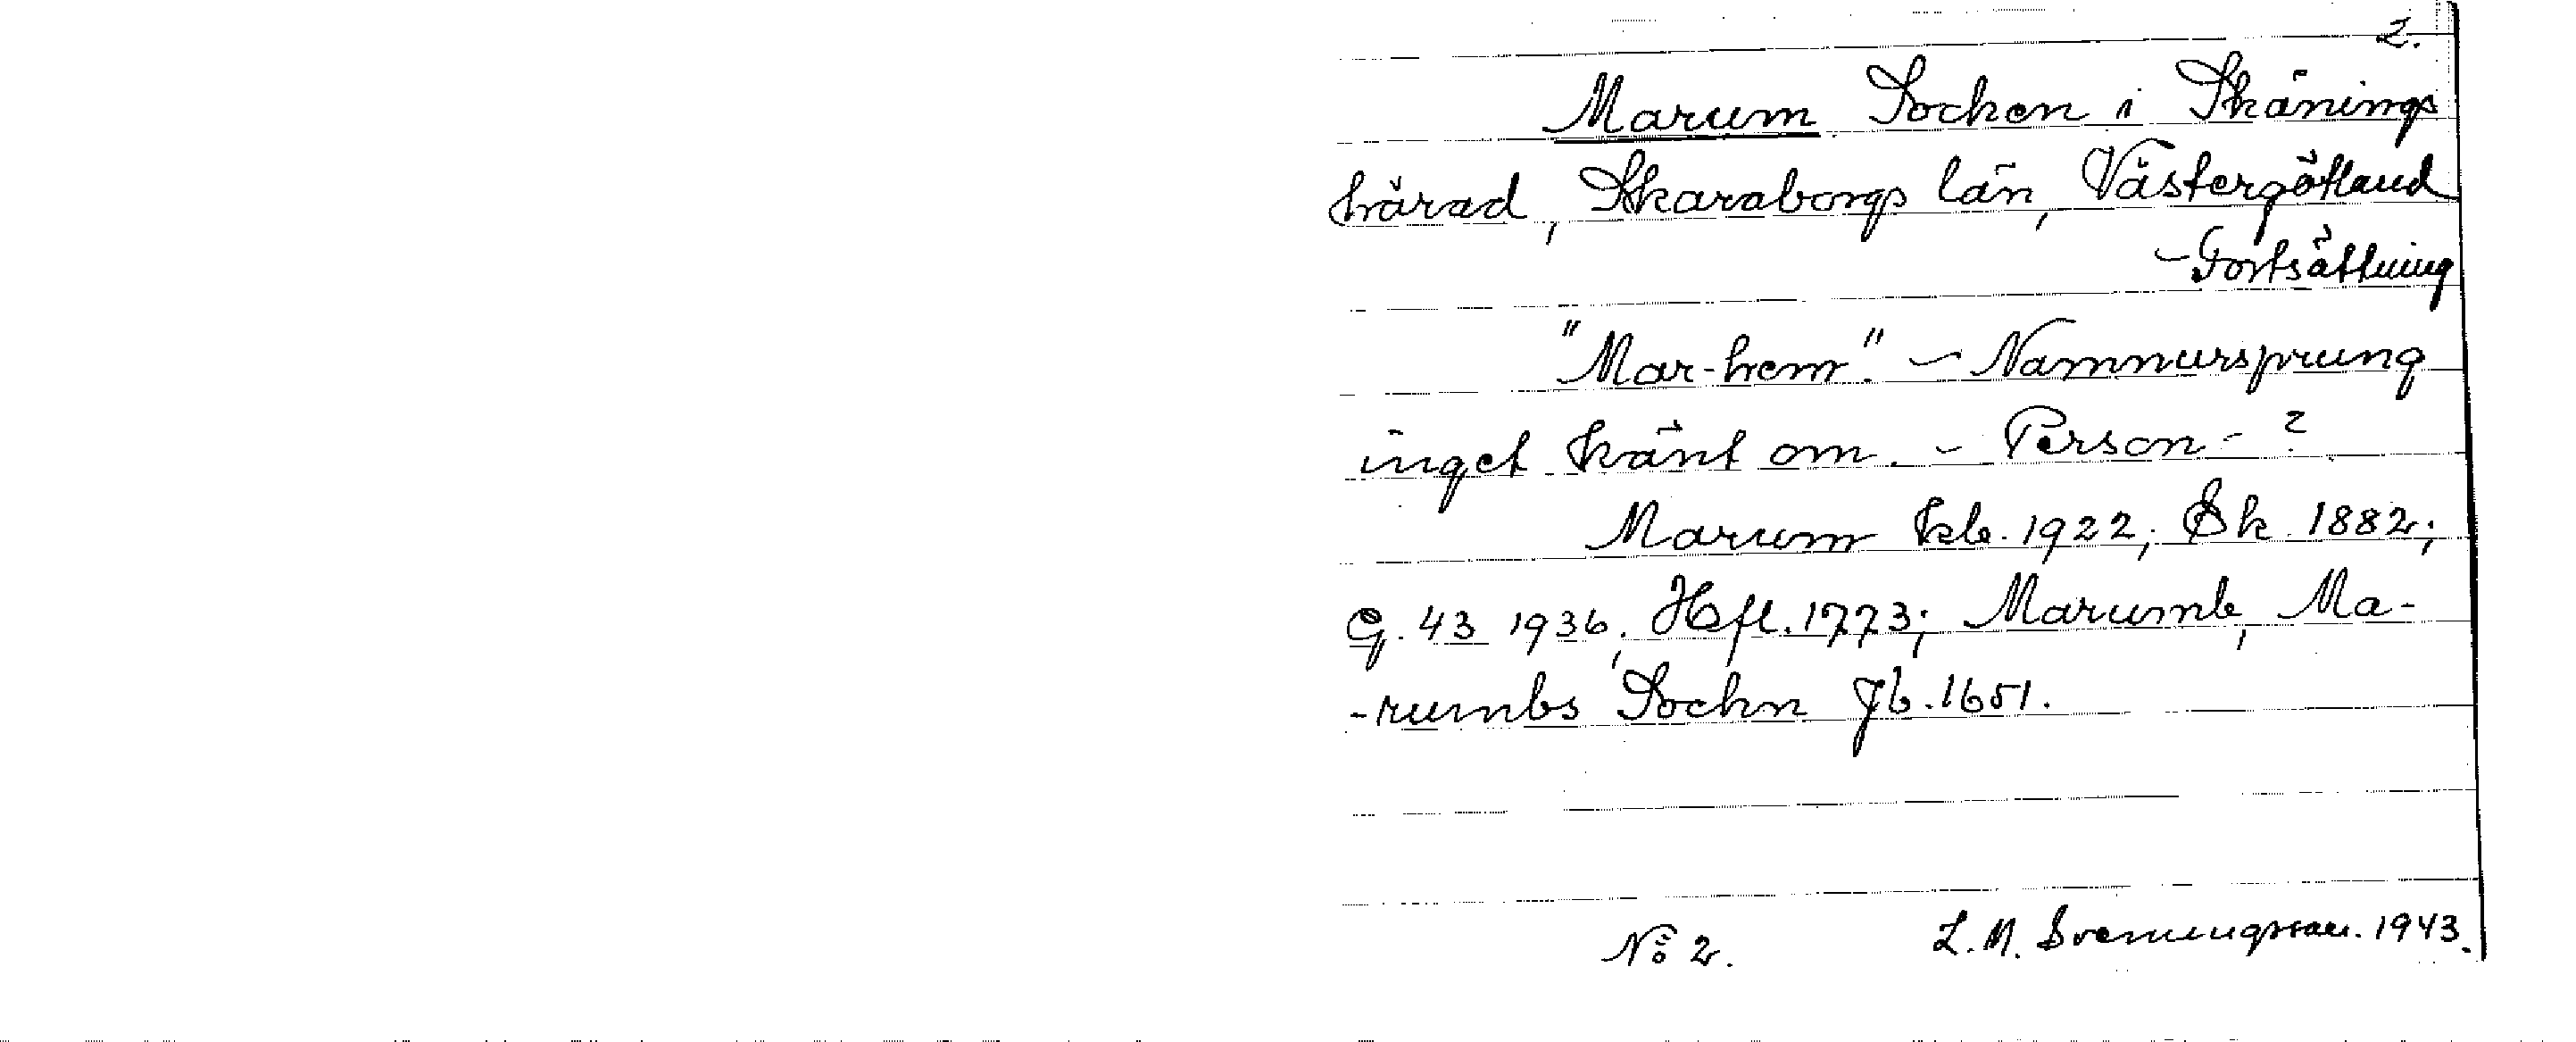 2.
Marum Socken i Skånings
härad, Skaraborgs län, Västergötland
- Fortsättning
"Mar-hem". - Namnursprung
inget känt om. - Person - ?
Marum kb. 1922; Sk 1882;
G. 43 1936; Hfl. 1773; Marumb, Ma-
-rumbs Sochn Jb. 1651.
No 2. L. M. Svenungsson. 1943.